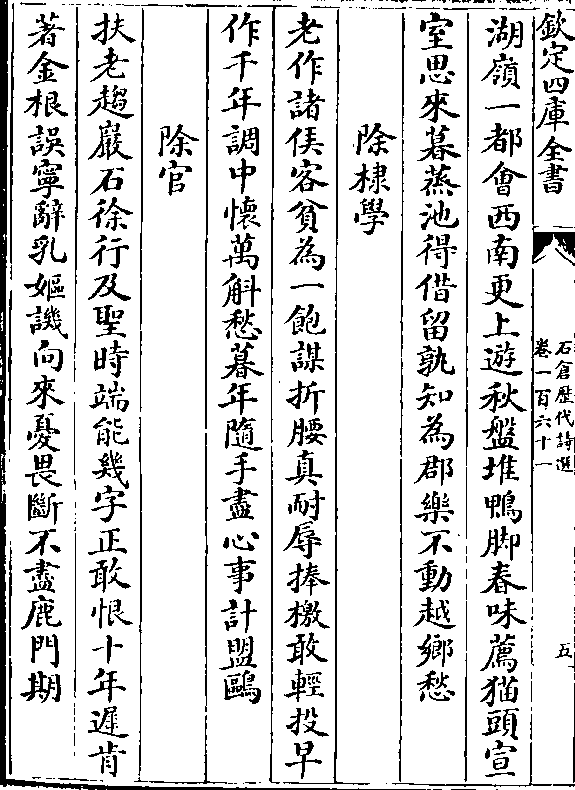 欽定四庫全書
石倉歷代詩選
卷一百六十一
五
湖嶺一都會西南更上遊秋盤堆鴨脚春味薦猫頭宣
室思來暮蒸池得借留孰知為郡樂不動越鄉愁
除棣學
老作諸侯客貧為一飽謀折腰真耐辱捧檄敢輕投早
作千年調中懷萬斛愁暮年隨手盡心事計盟鷗
除官
扶老趨巖石徐行及聖時端能幾字正敢恨十年遲肯
著金根誤寧辭乳嫗譏向來憂畏斷不盡鹿門期